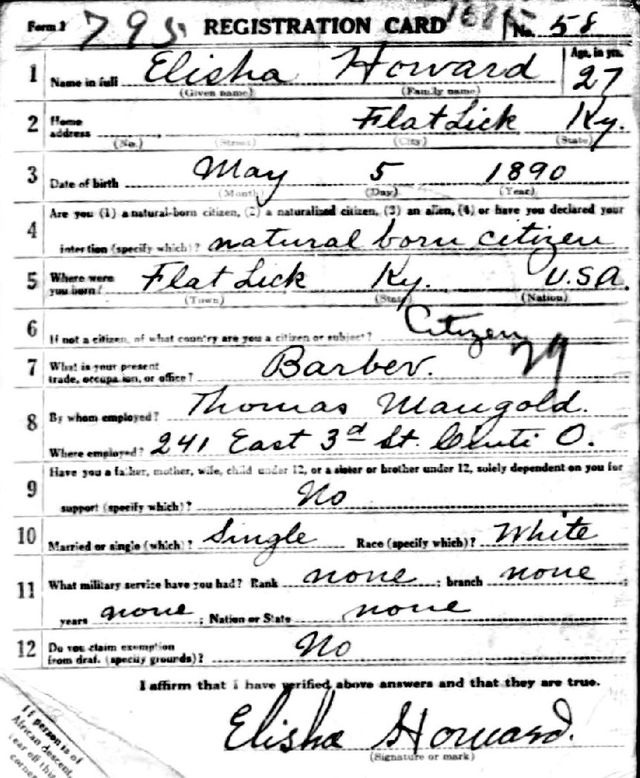 Form 1 795 REGISTRATION CARD No. 58
1 Name in full Elisha Howard Age, in yrs. 27
(Given name) (Family name)
2 Home address Flat Lick Ky.
(No.) (Street) (City) (State)
3 Date of birth May 5 1890
(Month) (Day) (Year)
4 Are you (1) a natural-born citizen, (2) a naturalized citizen, (3) an alien, (4) or have you declared your
intention (specify which)? natural born citizen
5 Where were you born? Flat Lick Ky. U.S.A.
(Town) (State) (Nation)
6 If not a citizen, of what country are you a citizen or subject? Citizen
7 What is your present trade, occupation, or office? Barber. 29
8 By whom employed? Thomas Mangold.
Where employed? 241 East 3rd St. Cinti O.
9 Have you a father, mother, wife, child under 12, or a sister or brother under 12, solely dependent on you for
support (specify which)? No
10 Married or single (which)? Single Race (specify which)? White
11 What military service have you had? Rank none ; branch none
years none ; Nation or State none
12 Do you claim exemption from draft (specify grounds)? No
I affirm that I have verified above answers and that they are true.
Elisha Howard.
(Signature or mark)
If person is of
African descent,
tear off this
corner